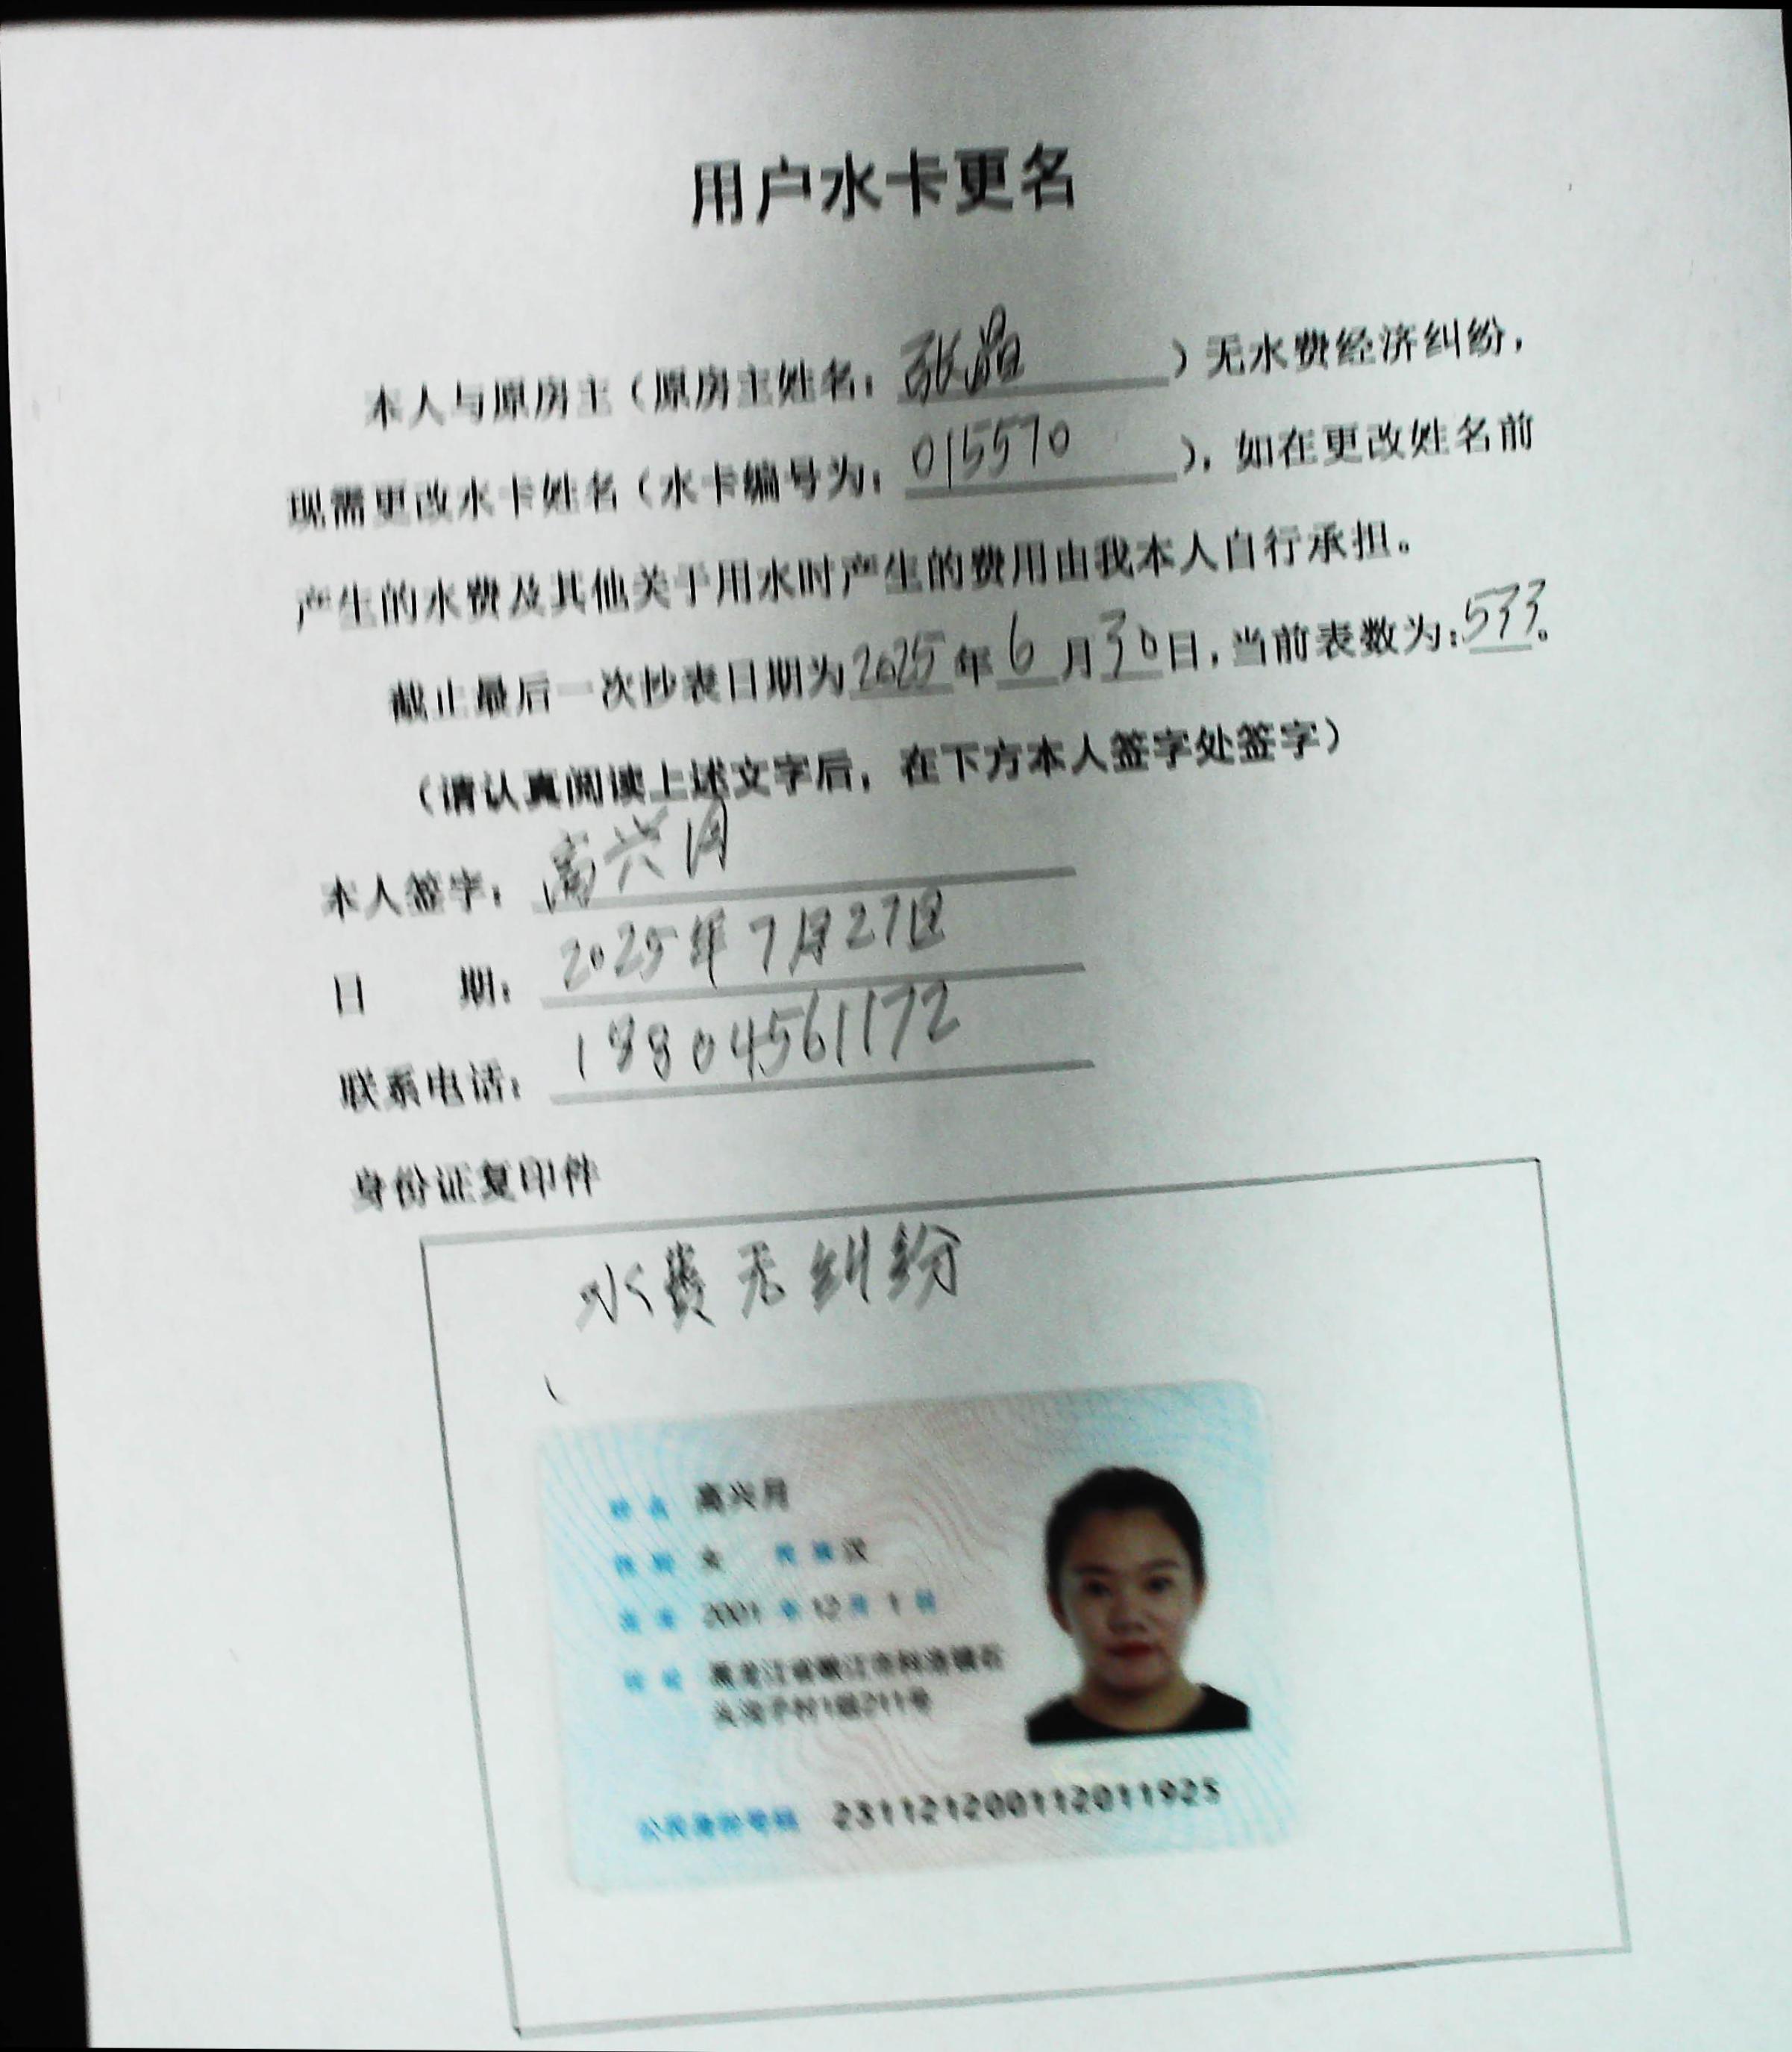 用户水卡更名
本人与原房主（原房主姓名：张）无水费经济纠纷，
现需更改水卡姓名（水卡编号为：015570），如在更改姓名前
产生的水费及其他关于用水时产生的费用由我本人自行承担。
截止最后一次抄表日期为2025年6月30日，当前表数为：533。
（请认真阅读上述文字后，在下方本人签字处签字）
本人签字：高兴月
日 期：2025年7月27日
联系电话：18804561172
身份证复印件
水费无纠纷
姓名 高兴月
性别 女 民族 汉
出生 2001年12月1日
住址 黑龙江省嫩江市科洛镇石
头沟子村1组211号
公民身份号码 231121200112011925